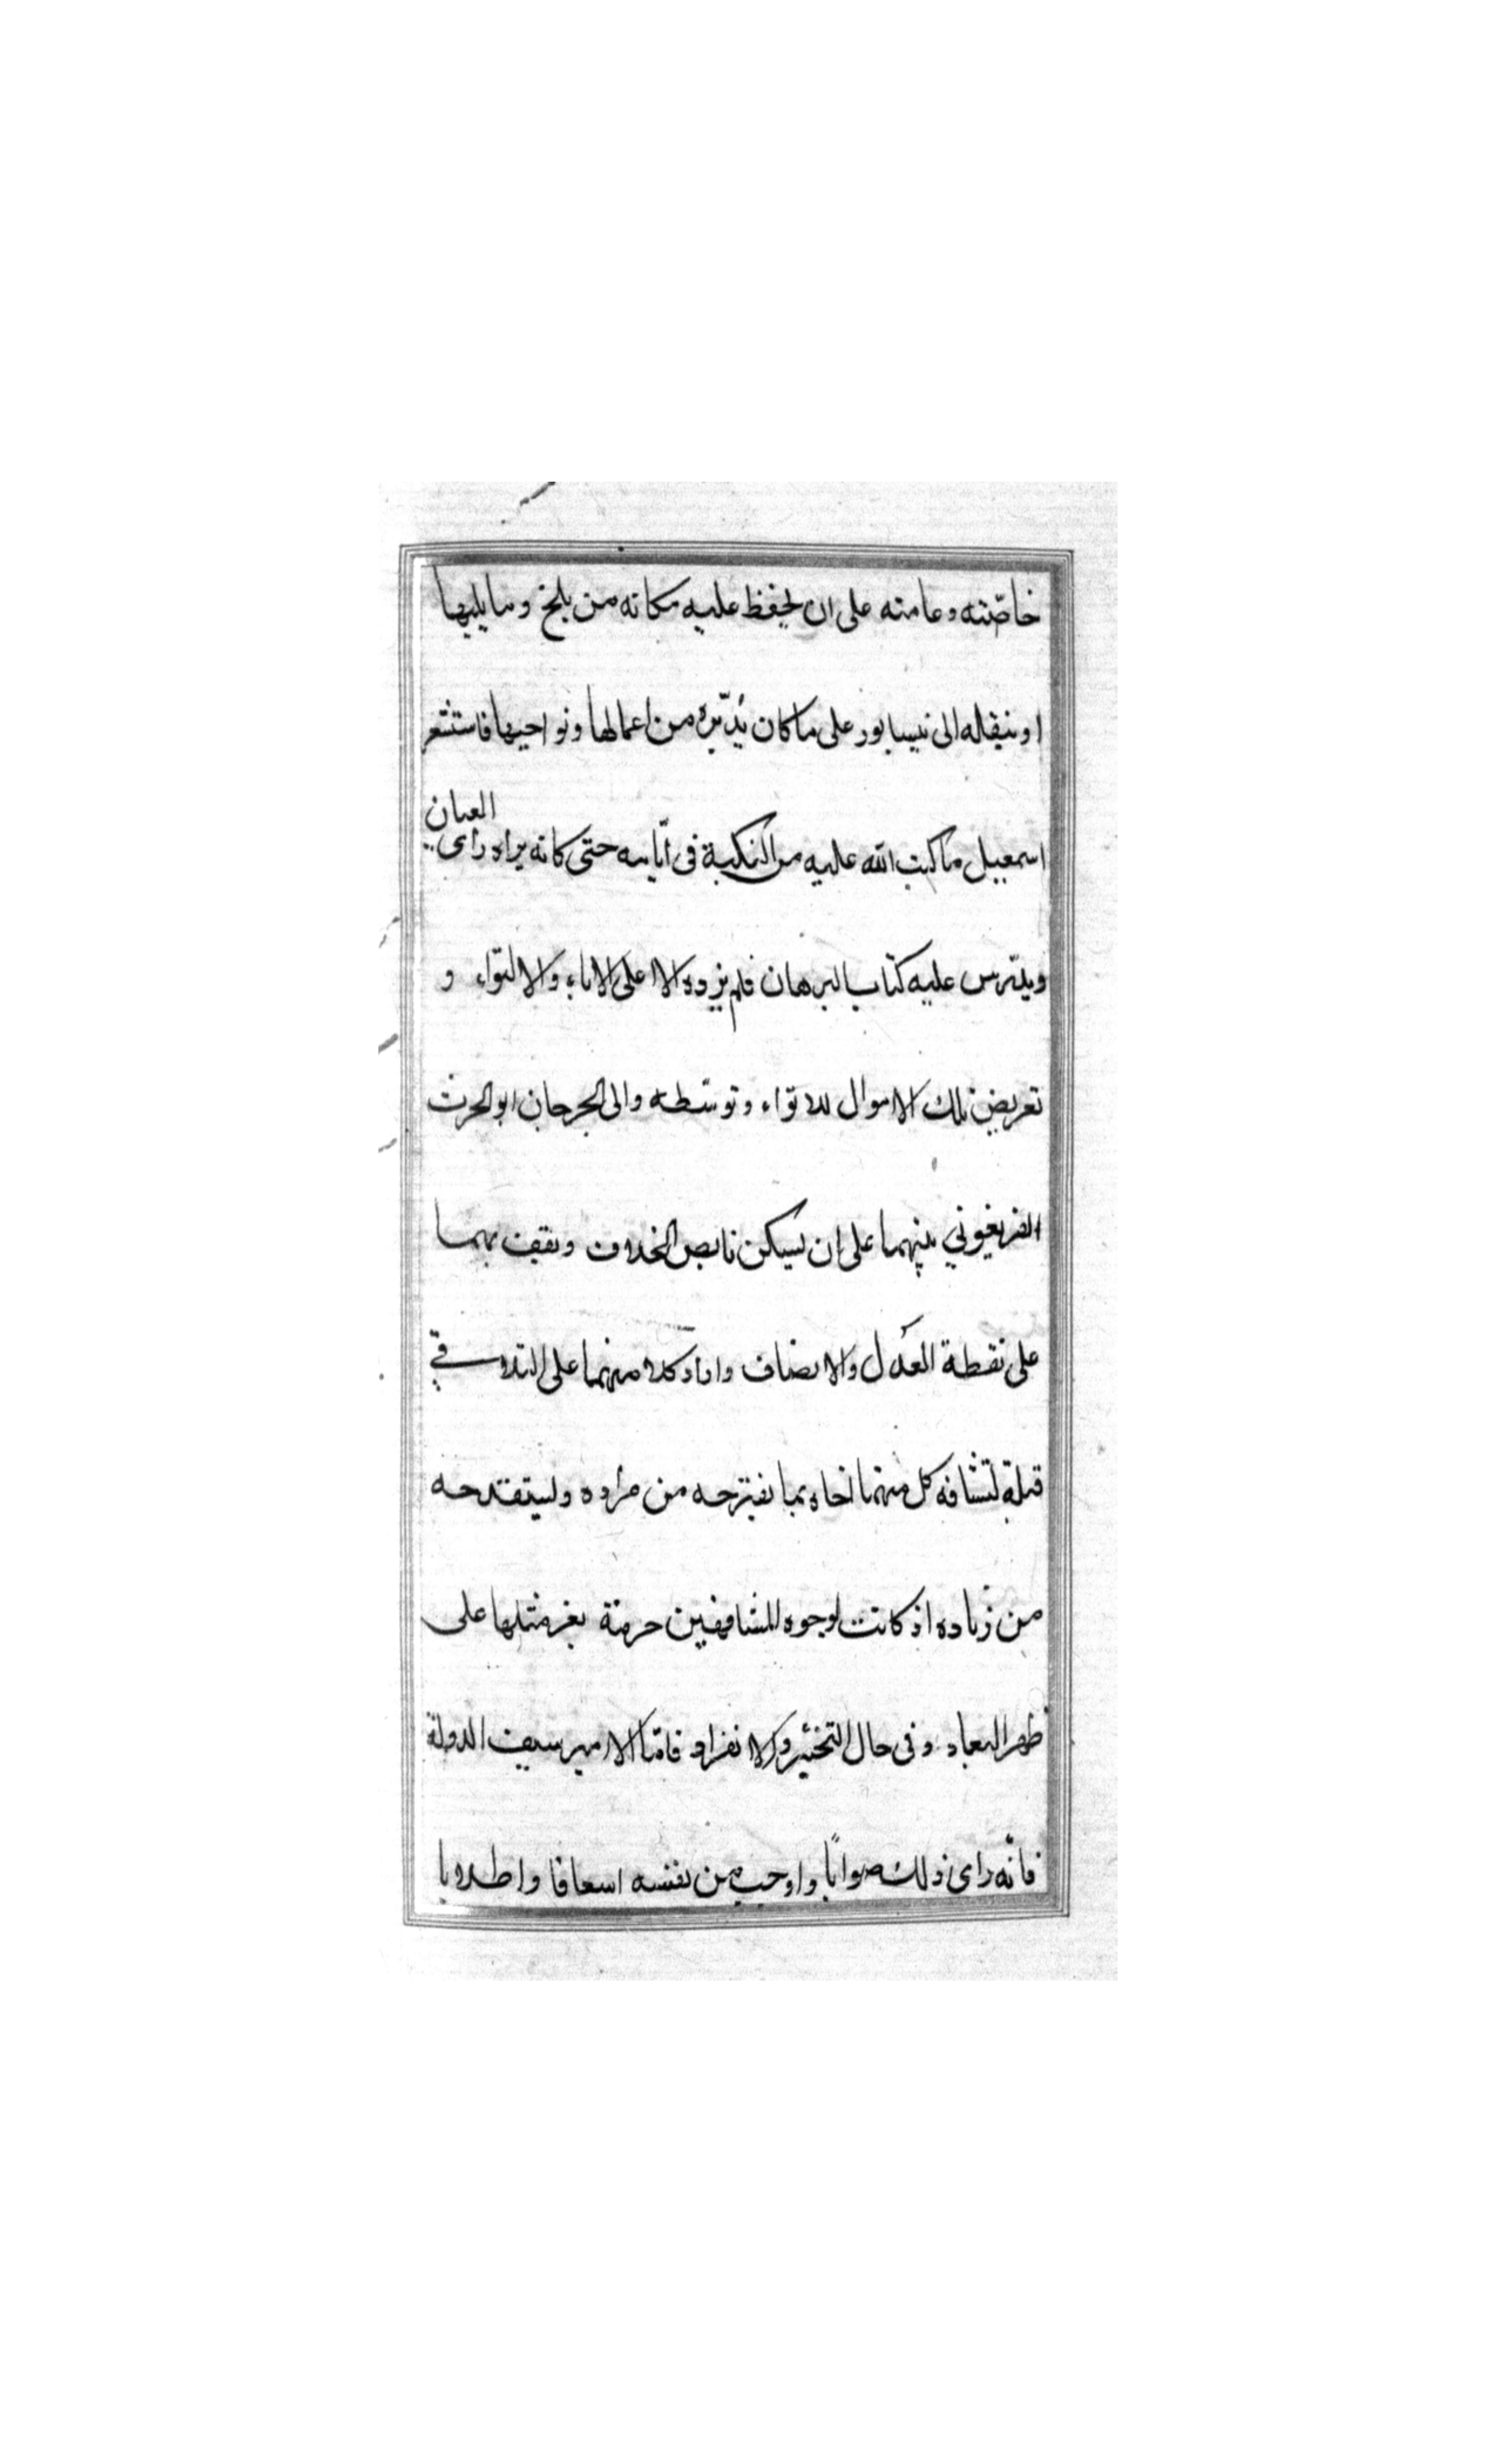 خاصّته وعامته على ان يحفظ عليه مكانه من بلخ وما يليها
او ينقله الى نيسابور على ما كان يُدبّره من اعمالها ونواحيها فاستشعر
اسمعيل ما كتب الله عليه من النكبة فى ايّامه حتى كانه يراه راى العيان
ويدّرس عليه كتاب البرهان فلم يزده الا على الاباء والالتواء و
تعريض تلك الاموال للاتواء وتوسّطه والى الجرجان ابو الحرث
الفريغوني بينهما على ان يسكن نابض الخلاف ويقف بهما
على نقطة العدل والانصاف واراد كلا منهما على التلاقي
قبلة لتشافه كل منهما اخاه بما يقترحه من مراده وليستقدحه
من زناده اذ كانت لوجوه المشافهين حرمة يغر مثلها على
ظهر البعاد وفى حال التخثر والانفراد فامّا الامير سيف الدولة
فانّه راى ذلك صوابًا واوجب من نفسه اسعافا واطلابا